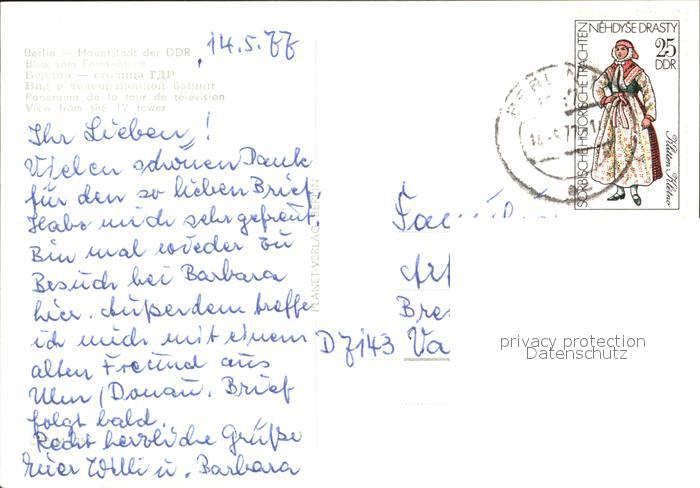 Berlin — Hauptstadt der DDR
Blick vom Fernsehturm
Берлин — столица ГДР
Вид с телевизионной башни
Panorama de la tour de télévision
View from the TV tower
14.5.77
Ihr Lieben!
Vielen schönen Dank
für den so lieben Brief.
Habe mich sehr gefreut.
Bin mal wieder zu
Besuch bei Barbara
hier. Außerdem treffe
ich mich mit einem
alten Freund aus
Ulm/Donau. Brief
folgt bald.
Recht herzliche Grüße
Euer Willi u. Barbara
PLANET-VERLAG BERLIN
NĚHDYŠE DRASTY
25
DDR
SORBISCHE HISTORISCHE TRACHTEN
BERLIN
Famil
Bre
D7143 Va
privacy protection
Datenschutz